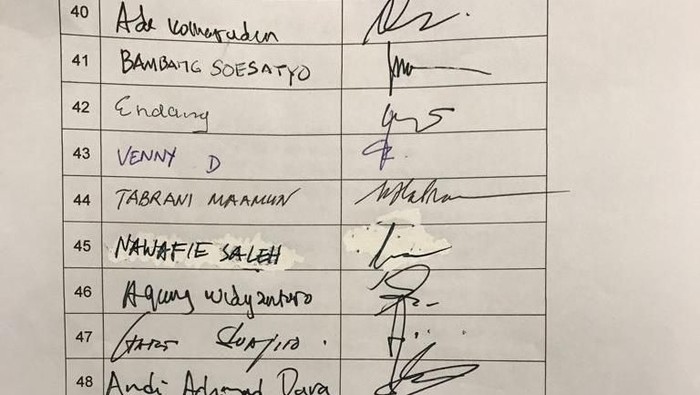 40 Ade Komarudin
41 BAMBANG SOESATYO
42 Endang
43 VENNY D
44 TABRANI MAAMUN
45 NAWAFIE SALEH
46 Agung widyantoro
47
48 Andi Achmad Dara